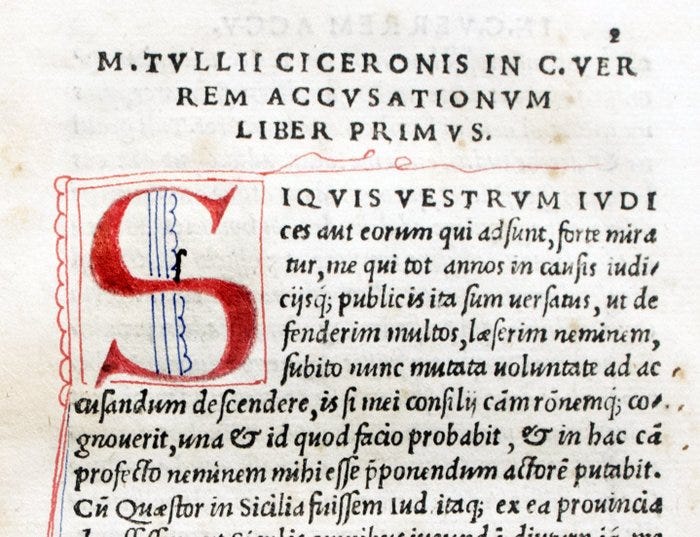 2
M. TVLLII CICERONIS IN C. VER
REM ACCVSATIONVM
LIBER PRIMVS.
SIQVIS VESTRVM IVDI
ces aut eorum qui adſunt, forte mira
tur, me qui tot annos in cauſis iudi-
cijsq; publicis ita ſum uerſatus, ut de
fenderim multos, læſerim neminem,
ſubito nunc mutata uoluntate ad ac
cuſandum deſcendere, is ſi mei conſilij cām rōnemq; co-
gnouerit, una & id quod facio probabit, & in hac cā
profecto neminem mihi eſſe p̄ponendum actorē putabit.
Cū Quæſtor in Sicilia fuiſſem Iud. itaq; ex ea prouincia